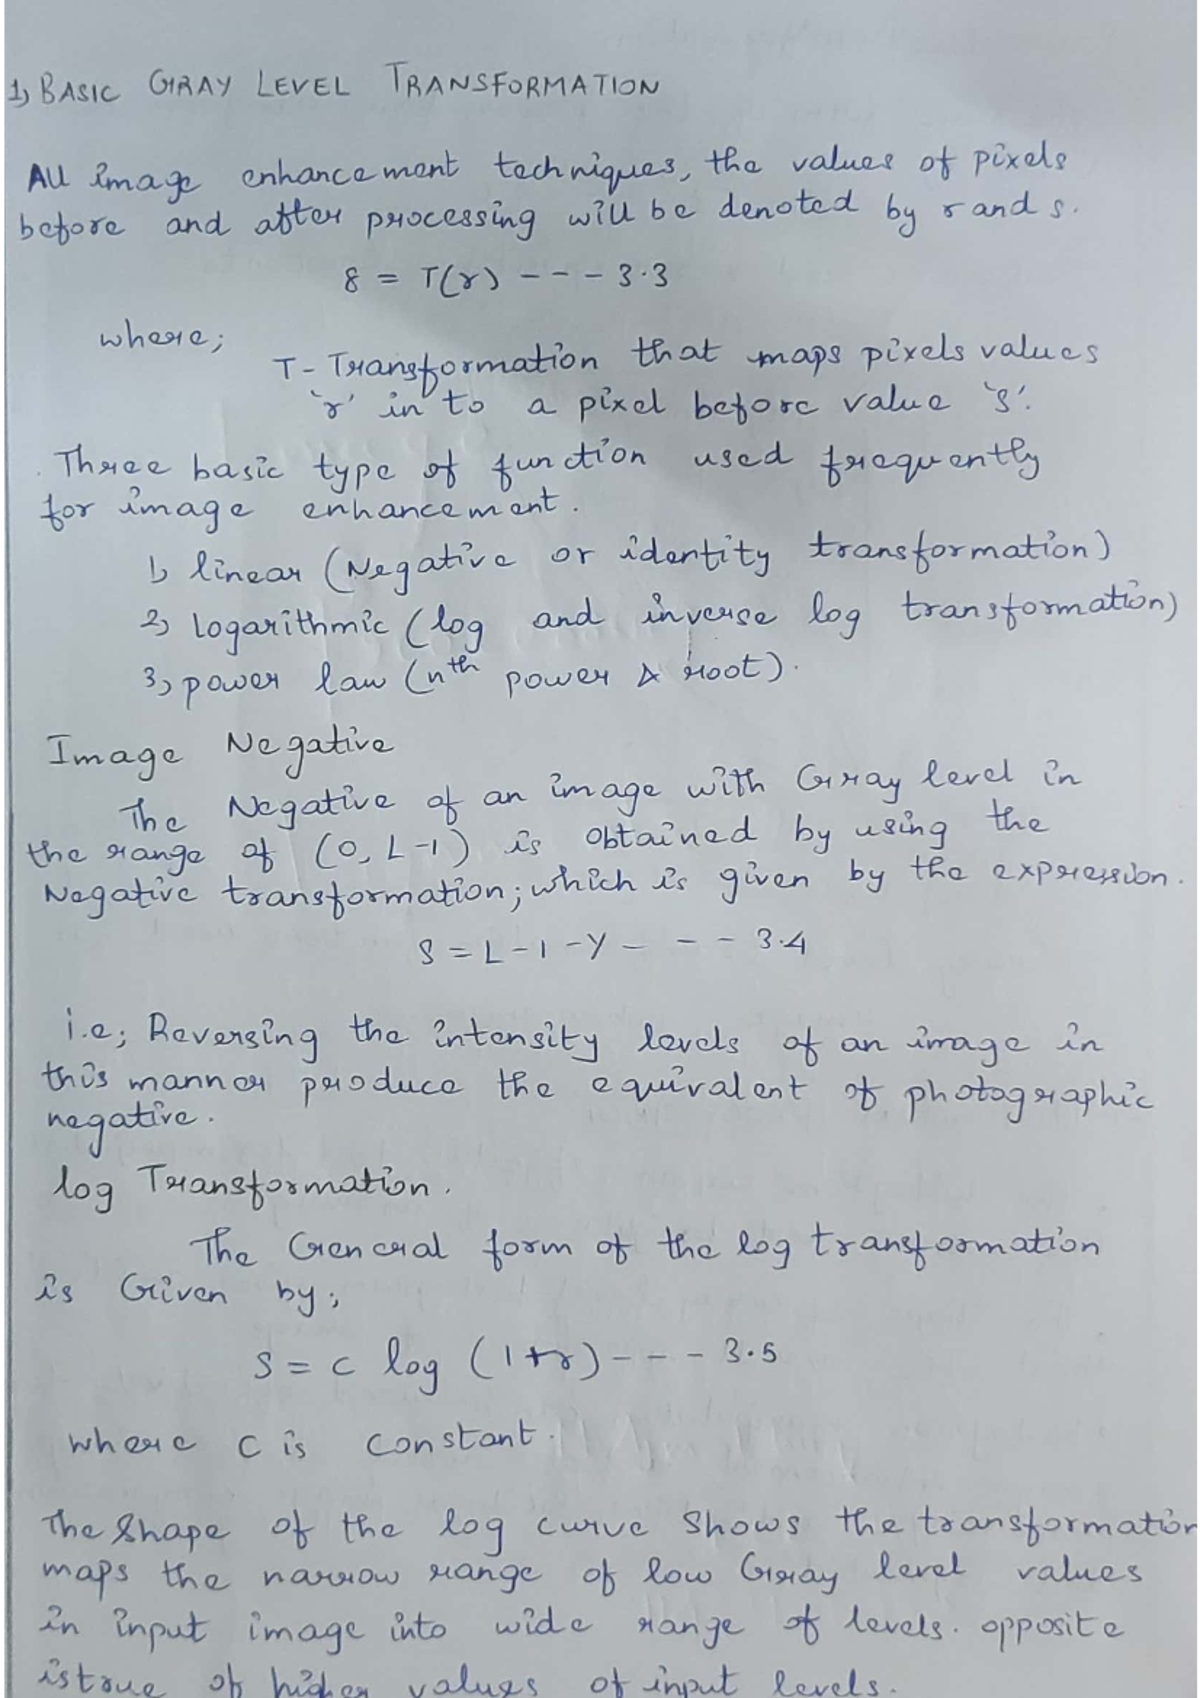 1) BASIC GRAY LEVEL TRANSFORMATION
All image enhancement techniques, the values of pixels
before and after processing will be denoted by r and s.
s = T(r) - - - 3.3
where;
T - Transformation that maps pixels values
'r' in to a pixel before value 's'.
Three basic type of function used frequently
for image enhancement.
1) linear (Negative or identity transformation)
2) logarithmic (log and inverse log transformation)
3) power law (nth power & root).
Image Negative
The Negative of an image with Gray level in
the range of (0, L-1) is obtained by using the
Negative transformation; which is given by the expression.
S = L - 1 - Y - - - - 3.4
i.e; Reversing the intensity levels of an image in
this manner produce the equivalent of photographic
negative.
log Transformation.
The General form of the log transformation
is Given by;
S = c log (1+r) - - - 3.5
where c is constant.
The Shape of the log curve Shows the transformation
maps the narrow range of low Gray level values
in input image into wide range of levels. opposite
is true of higher values of input levels.